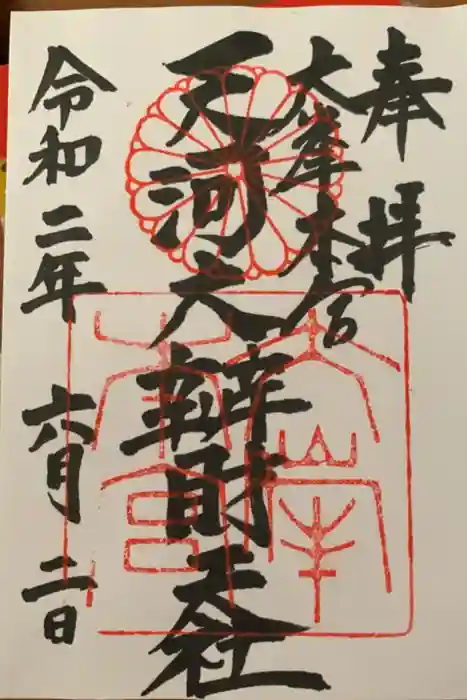 奉拝
大峯本宮
天河大辨財天社
令和二年六月二日